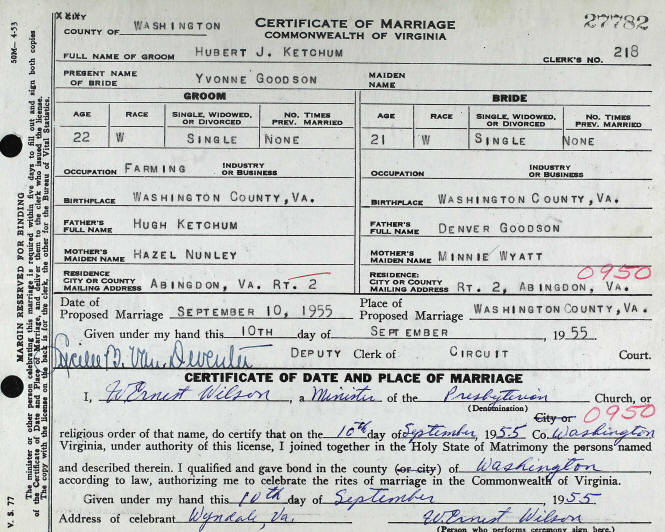 XCITY
COUNTY OF WASHINGTON
CERTIFICATE OF MARRIAGE
COMMONWEALTH OF VIRGINIA
27782
FULL NAME OF GROOM HUBERT J. KETCHUM CLERK'S NO. 218
PRESENT NAME OF BRIDE YVONNE GOODSON MAIDEN NAME
GROOM BRIDE
AGE RACE SINGLE, WIDOWED, OR DIVORCED NO. TIMES PREV. MARRIED AGE RACE SINGLE, WIDOWED, OR DIVORCED NO. TIMES PREV. MARRIED
22 W SINGLE NONE 21 W SINGLE NONE
OCCUPATION FARMING INDUSTRY OR BUSINESS OCCUPATION INDUSTRY OR BUSINESS
BIRTHPLACE WASHINGTON COUNTY, VA. BIRTHPLACE WASHINGTON COUNTY, VA.
FATHER'S FULL NAME HUGH KETCHUM FATHER'S FULL NAME DENVER GOODSON
MOTHER'S MAIDEN NAME HAZEL NUNLEY MOTHER'S MAIDEN NAME MINNIE WYATT
0950
RESIDENCE: CITY OR COUNTY MAILING ADDRESS ABINGDON, VA. RT. 2 RESIDENCE: CITY OR COUNTY MAILING ADDRESS RT. 2, ABINGDON, VA.
Date of Proposed Marriage SEPTEMBER 10, 1955 Place of Proposed Marriage WASHINGTON COUNTY, VA.
Given under my hand this 10TH day of SEPTEMBER, 1955
Lucille B. Van Deventer DEPUTY Clerk of CIRCUIT Court.
CERTIFICATE OF DATE AND PLACE OF MARRIAGE
I, W Ernest Wilson, a Minister of the Presbyterian Church, or
(Denomination) City or 0950
religious order of that name, do certify that on the 10th day of September, 1955 Co. Washington
Virginia, under authority of this license, I joined together in the Holy State of Matrimony the persons named
and described therein. I qualified and gave bond in the county (or city) of Washington,
according to law, authorizing me to celebrate the rites of marriage in the Commonwealth of Virginia.
Given under my hand this 10th day of September 1955.
Address of celebrant Wyndale, Va. W Ernest Wilson
(Person who performs ceremony sign here.)
V. S. 77
50M—4-53
MARGIN RESERVED FOR BINDING
The minister or other person celebrating this marriage is required within five days to fill out and sign both copies
of the Certificate of Date and Place of Marriage, and deliver them to the clerk who issued the license.
The copy with the license on the back is for the clerk, the other for the Bureau of Vital Statistics.